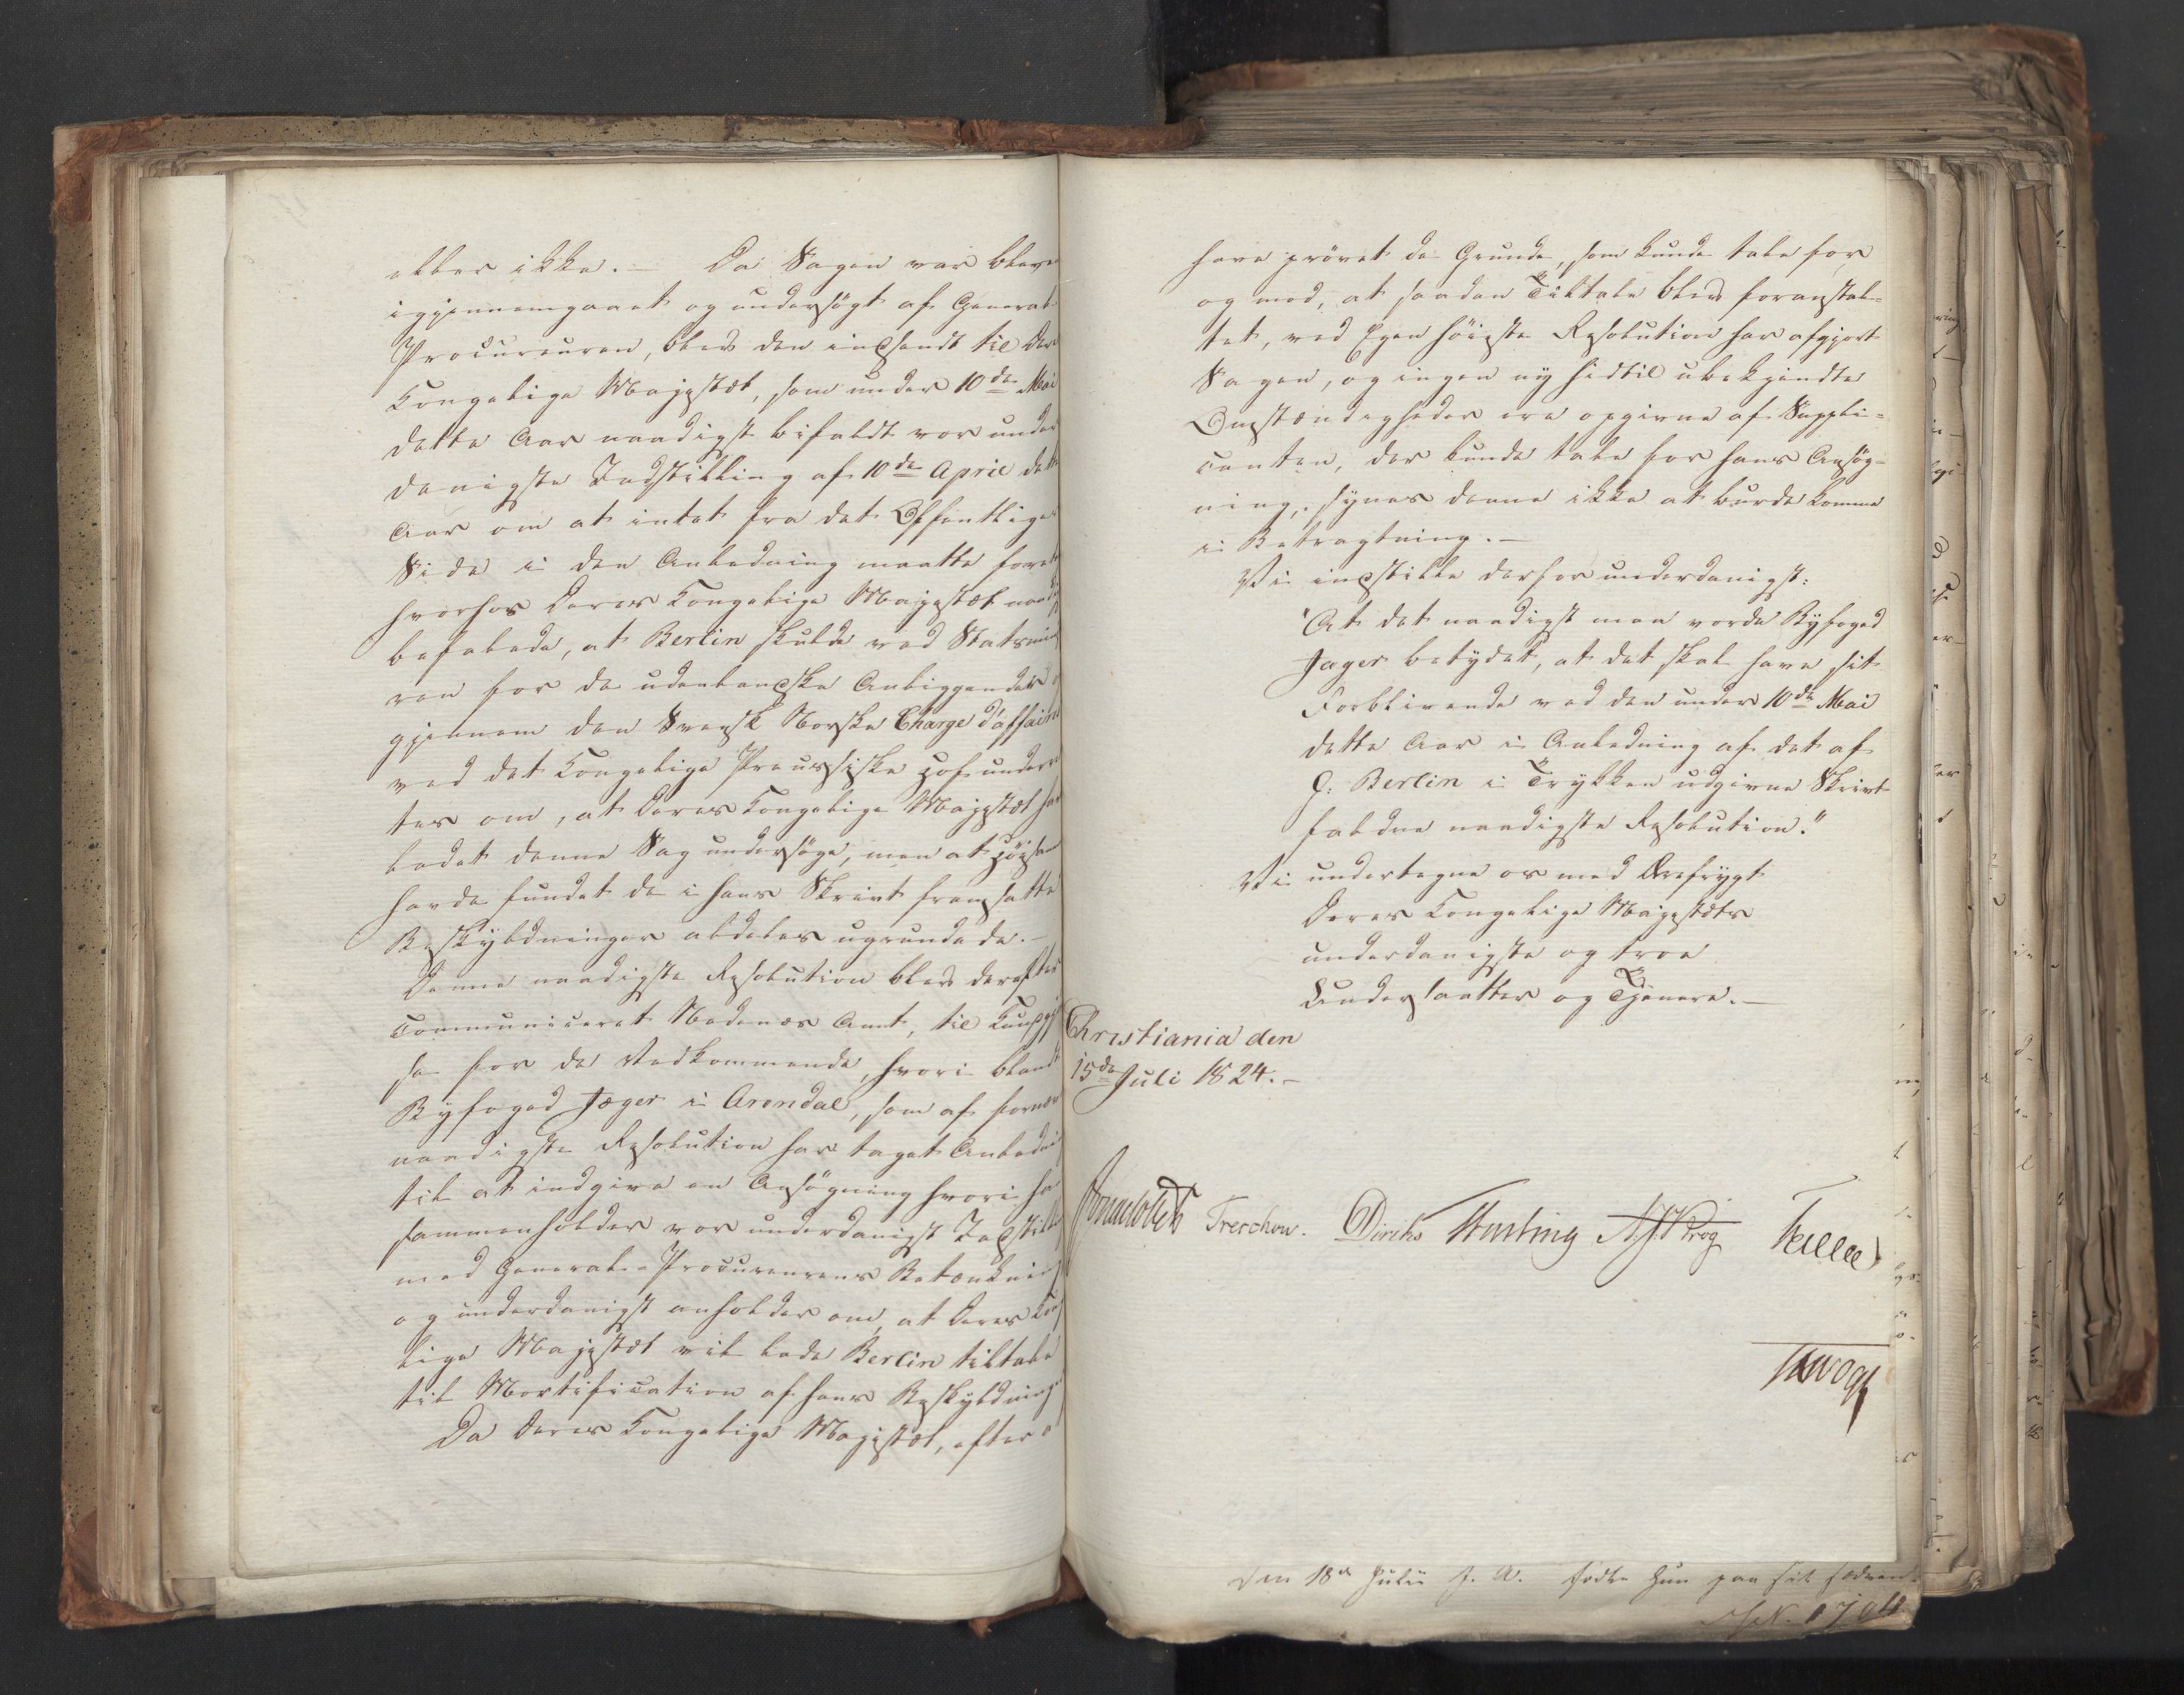 eller ikke. — Da Sagen var bleven
igjennemgaaet og undersögt af General-
Procureuren, blev den indsendt til Deres
Kongelige Majestæt, som under 10de Mai
dette Aar naadigst bifaldt vor under-
danigste Indstilling af 10de April dette
Aar om at intet fra det Offentliges
Side i den Anledning maatte foretages
hvorhos Deres Kongelige Majestæt naadigst
befalede, at Berlin skulde ved Statsminist
ren for de udenlandske Anliggender og
gjennem den Svensk Norske Charge d'affaires
ved det Kongelige Preussiske Hof underret-
tes om, at Deres Kongelige Majestæt har
ladet denne Sag undersöge, men at Höist
havde fundet de i hans Skrivt fremsatte
Beskyldninger aldeles ugrundede. —
Denne naadigste Resolution blev derefter
communiceret Nedenæs Amt, til Kundgjörel
se for de Vedkommende, hvori blandt
Byfoged Jæger i Arendal, som af fornævnte
naadigste Resolution har taget Anledning
til at indgive en Ansögning hvori han
sammenholder vor underdanigst Indstilling
med General-Procureurens Betænkning
og underdanigst anholder om, at Deres Konge
lige Majestæt vil lade Berlin tiltale
til Mortification af hans Beskyldninger
Da Deres Kongelige Majestæt, efter at
have prövet de Grunde, som kunde tale for
og mod, at saadan Tiltale blev foranstal-
tet, ved Egen höieste Resolution har afgjort
Sagen, og ingen ny hidtil ubekjendte
Omstændigheder ere opgivne af Suppli-
canten, der kunde tale for hans Ansög-
ning, synes denne ikke at burde komme
i Betragtning. —
Vi indstille derfor underdanigst:
"At det naadigst maa vorde Byfoged
Jæger betydet, at det skal have sit
Forblivende ved den under 10de Mai
dette Aar i Anledning af det af
J: Berlin i Trykken udgivne Skrivt
faldne naadigste Resolution."
Vi undertegne os med Ærefrygt
Deres Kongelige Majestæts
underdanigste og troe
Undersaatter og Tjenere. —
Christiania den
15de Juli 1824. —
Treschow. Diriks Hasting Krog
den 18de Julii f. A. födte hun paa sit